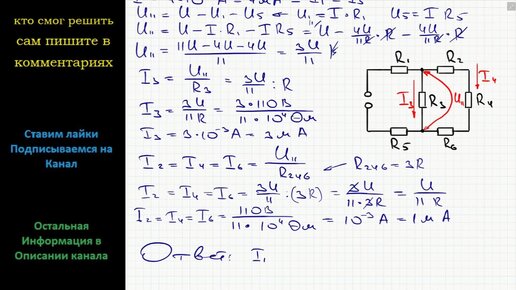 кто смог решить
сам пишите в
комментариях
Ставим лайки
Подписываемся на
Канал
Остальная
Информация в
Описании канала
U₁₁ = U − U₁ − U₅ ← U₁ = I·R₁ U₅ = I R₅
U₁₁ = U − I·R₁ − I R₅ = U − 4U/11R·R − 4U/11R·R
U₁₁ = (11U − 4U − 4U)/11 = 3U/11
I₃ = U₁₁/R₃ = 3U/11 : R
I₃ = 3U/11R = 3·110В/11·10⁴Ом
I₃ = 3·10⁻³A = 3мA
I₂ = I₄ = I₆ = U₁₁/R₂₄₆ R₂₄₆ = 3R
I₂ = I₄ = I₆ = 3U/11·(3R) = 3U/11·3R = U/11R
I₂ = I₄ = I₆ = 110В/11·10⁴Ом = 10⁻³A = 1мA
Ответ: I₁
R₁ R₂
I₄
I₃ R₃ U₁₁ R₄
R₅ R₆